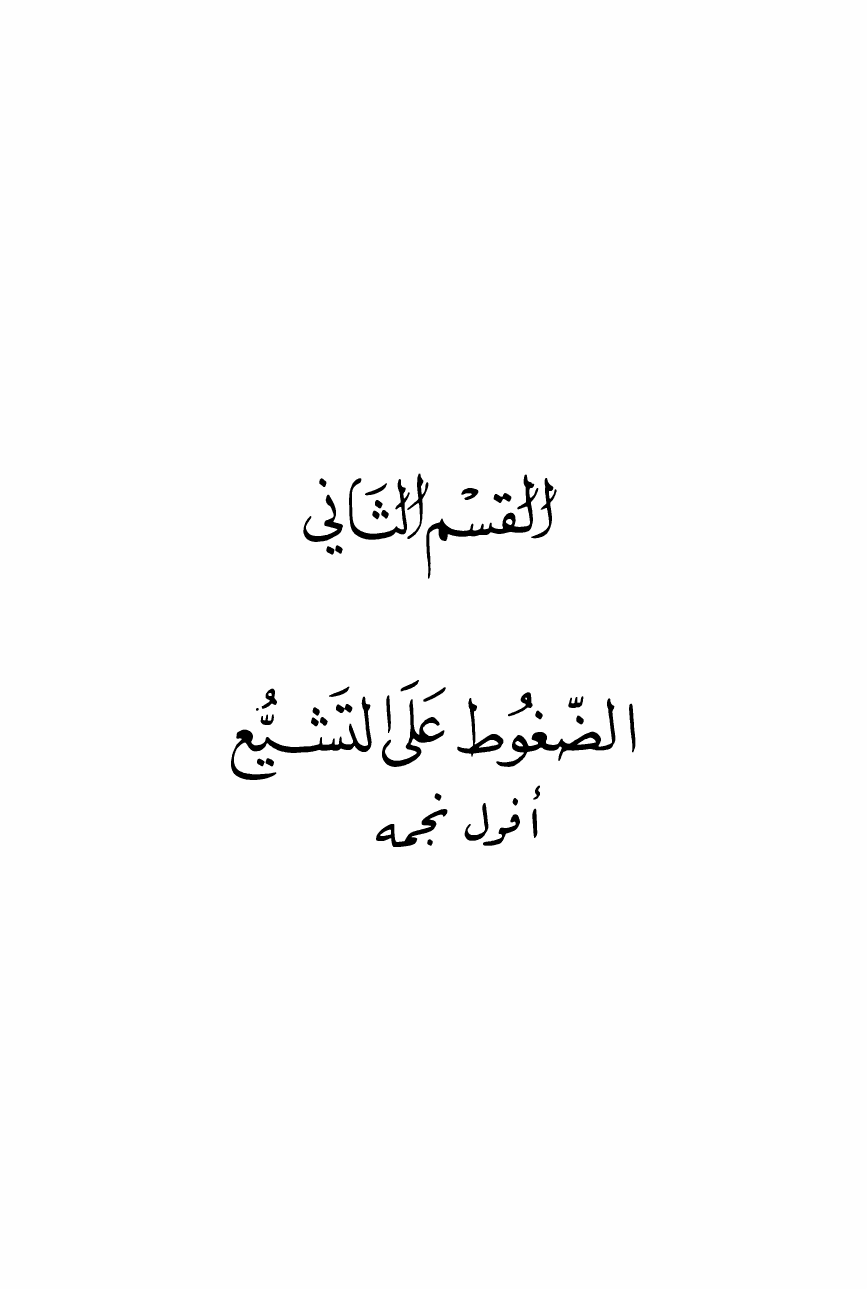 القسْم الثَاني
الضّغُوط عَلَى التَشيُّع
أفول نجمه